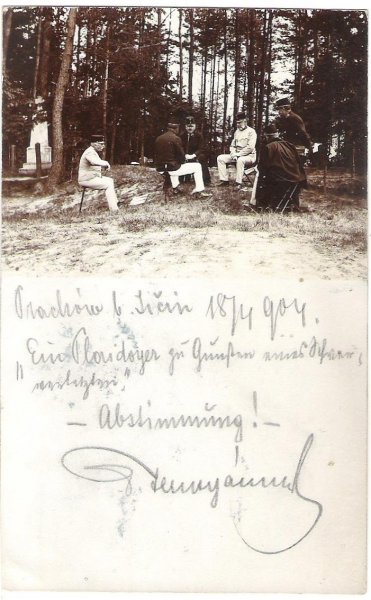 Prachów b Jičin 18/4 904.
"Ein Plaidoyer zu Gunsten eines Schwer-
verletzten."
- Abstimmung! -